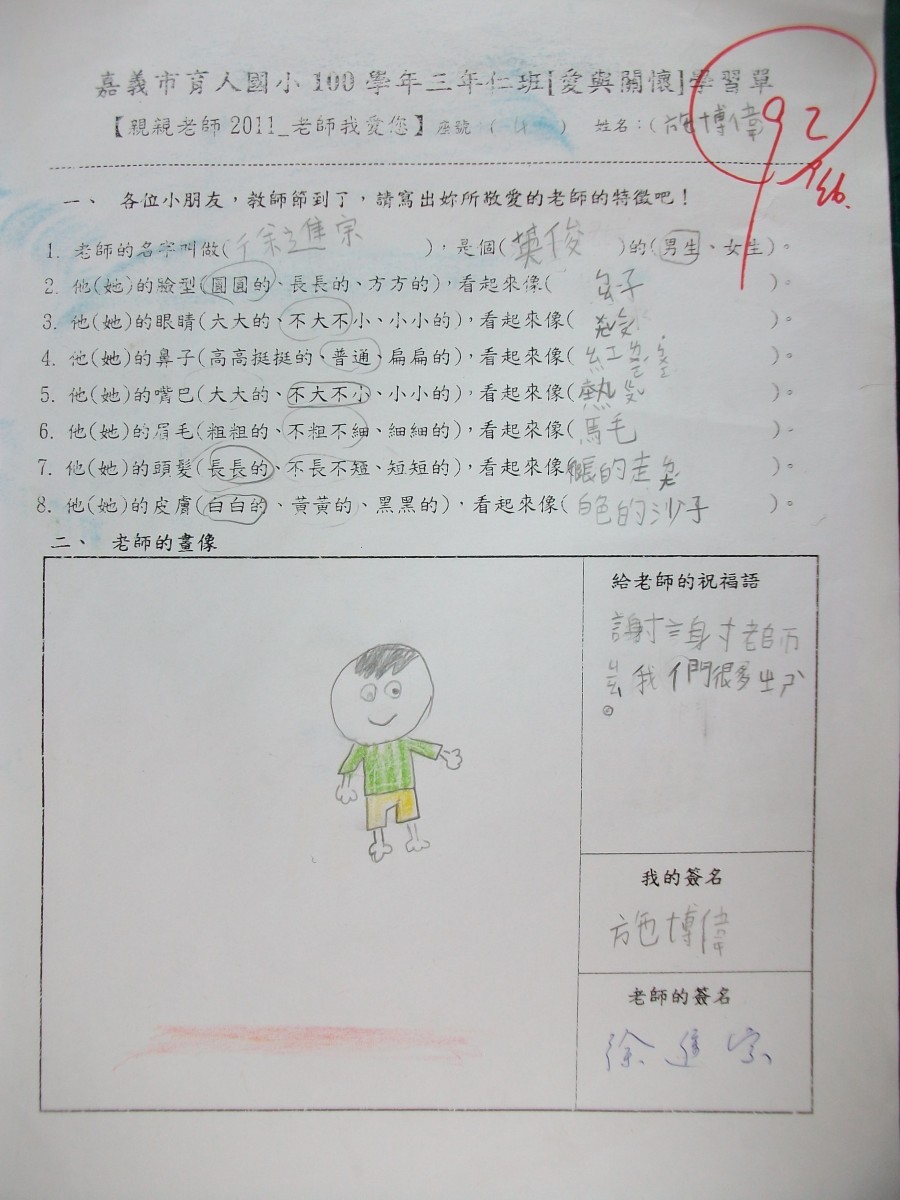 嘉義市育人國小100學年三年仁班[愛與關懷]學習單
【親親老師2011_老師我愛您】座號 ( 4 ) 姓名:(施博偉
92
一、 各位小朋友,教師節到了,請寫出妳所敬愛的老師的特徵吧!
1. 老師的名字叫做(徐進宗 ),是個(英俊 )的(男生、女生)。
2. 他(她)的臉型(圓圓的、長長的、方方的),看起來像( )。
3. 他(她)的眼睛(大大的、不大不小、小小的),看起來像( )。
4. 他(她)的鼻子(高高挺挺的、普通、扁扁的),看起來像( )。
5. 他(她)的嘴巴(大大的、不大不小、小小的),看起來像( )。
6. 他(她)的眉毛(粗粗的、不粗不細、細細的),看起來像(馬毛 )。
7. 他(她)的頭髮(長長的、不長不短、短短的),看起來像( )。
8. 他(她)的皮膚(白白的、黃黃的、黑黑的),看起來像(白色的沙子 )。
二、 老師的畫像
給老師的祝福語
謝謝老師
我們很多
。
我的簽名
施博偉
老師的簽名
徐進宗